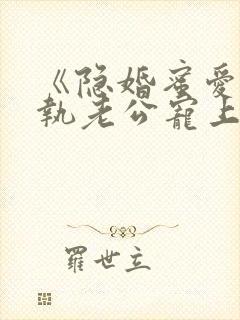 《隐婚蜜爱
执老公寵上
羅世立